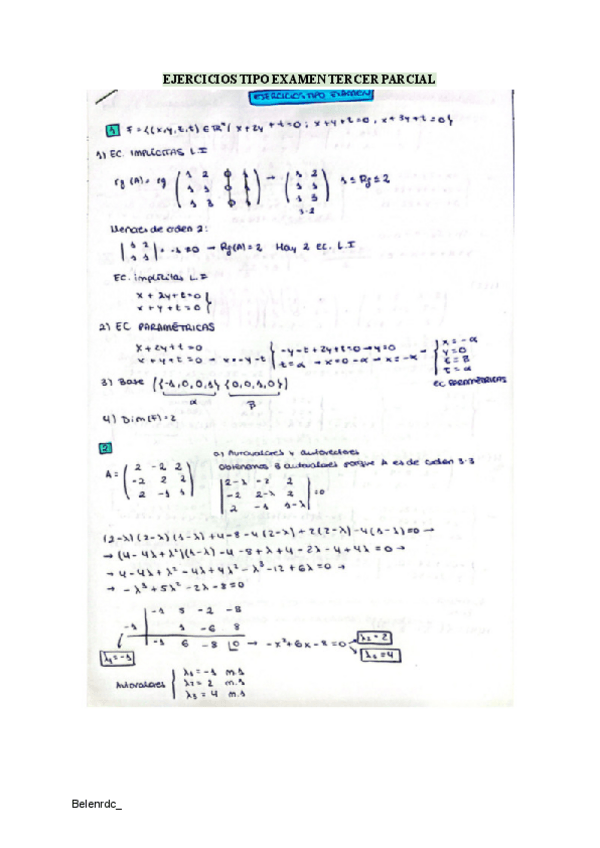 EJERCICIOS TIPO EXAMEN TERCER PARCIAL
EJERCICIOS TIPO EXAMEN
1 F = {(x,y,z,t) ∈ ℝ⁴ / x+2y+t=0; x+y+t=0, x+3y+t=0}
1) EC. IMPLÍCITAS L.I
rg(A) = rg
1 2 0 1
1 1 0 1
1 3 0 1
→
1 2
1 1
1 3
3·2
1 ≤ Rg ≤ 2
Menores de orden 2:
|1 2|
|1 1| = -1 ≠ 0 → Rg(A)=2 Hay 2 EC. L.I
EC. implícitas L.I
x+2y+t=0
x+y+t=0
2) EC PARAMÉTRICAS
x+2y+t=0
x+y+t=0 → x=-y-t
-y-t+2y+t=0 → y=0
t=α → x=0-α → x=-α →
x=-α
y=0
z=β
t=α
EC PARAMÉTRICAS
3) Base {(-1,0,0,1) (0,0,1,0)}
α β
4) Dim(F)=2
2
a) Autovalores y autovectores
Obtenemos 3 autovalores porque A es de orden 3·3
A =
2 -2 2
-2 2 2
2 -1 1
|2-λ -2 2|
|-2 2-λ 2| =0
|2 -1 1-λ|
(2-λ)(2-λ)(1-λ)+4-8-4(2-λ)+2(2-λ)-4(1-λ)=0→
→ (4-4λ+λ²)(1-λ)-4-8+λ+4-2λ-4+4λ=0→
→ 4-4λ+λ²-4λ+4λ²-λ³-12+6λ=0→
→ -λ³+5λ²-2λ-8=0
-1 5 -2 -8
-1 1 -6 8
-1 6 -8 0 → -x²+6x-8=0
λ₂=2
λ₃=4
λ₁=-1
Autovalores
λ₁=-1 m.1
λ₂=2 m.1
λ₃=4 m.1
Belenrdc_